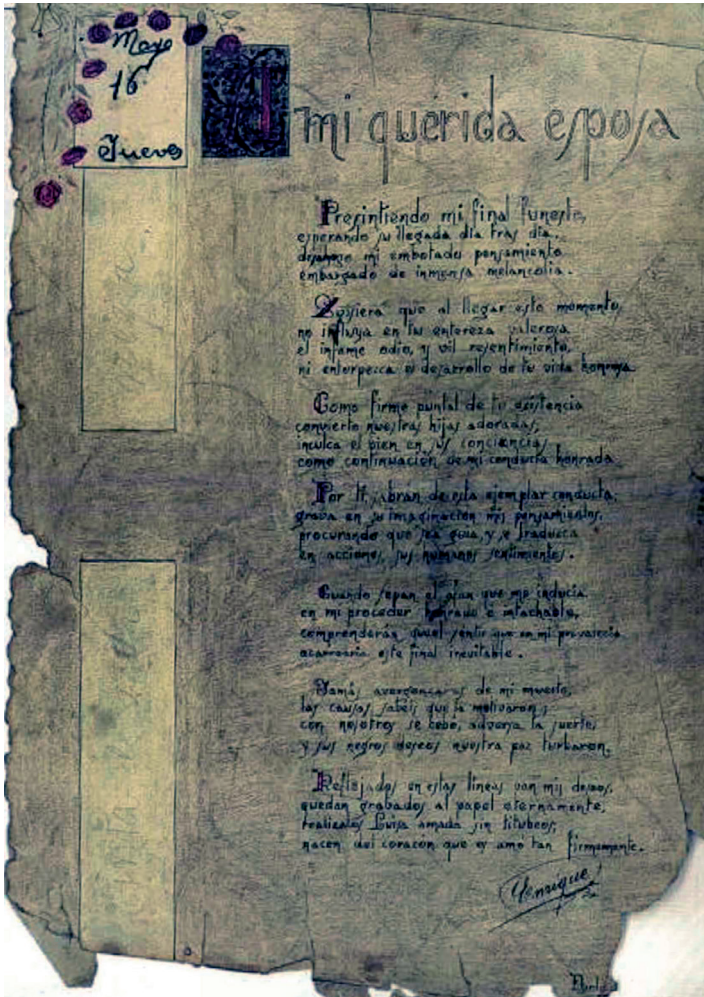 Mayo
16
Jueves
A mi querida esposa
Presintiendo mi final funesto,
esperando su llegada día tras día,
desahogo mi embotado pensamiento
embargado de inmensa melancolia.
Quisiera que al llegar este momento,
no influya en tu entereza valerosa
el infame odio, y vil resentimiento,
ni enterpezca el desarrollo de tu vida honrosa
Como firme puntal de tu existencia
convierte nuestras hijas adoradas,
inculca el bien en sus conciencias
como continuación de mi conducta honrada
Por ti sabran de esta ejemplar conducta,
grava en su imaginación mis pensamientos,
procurando que sea guia, y se traduzca
en acciones, sus humanos sentimientos.
Cuando sepan el afan que me inducía
en mi proceder honrado e intachable,
comprenderán que el sentir que en mi prevalecia
acarrearia este final inevitable.
Jamás avergonzaros de mi muerte,
las causas sabéis que la motivaron;
con nosotros se cebó, adversa la suerte,
y sus negros deseos nuestra paz turbaron,
Reflejados en estas líneas van mis deseos,
quedan grabados al papel eternamente,
realizalos Luisa amada sin titubeos,
nacen del corazón que os amó tan firmemente.
Henrique